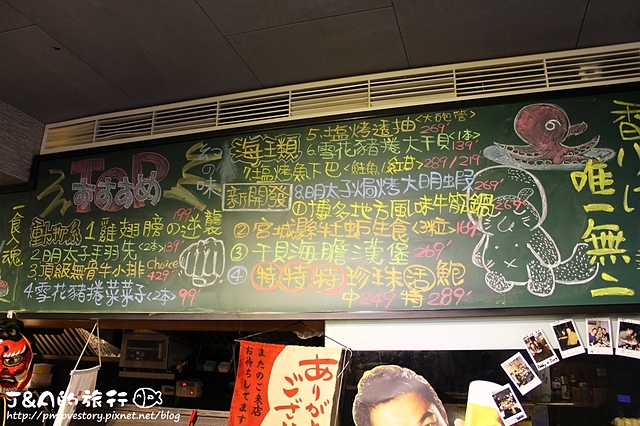 一食入魂
ToP
おすすめ
幻の味
動物系
1 雞翅膀の逆襲 199
2 明太子羽先<2本> 139
3 頂級無骨牛小排 Choice 429
4 雪花豬捲菜菜子<2本> 99
海王類
5. 塩烤透抽<大砲管> 269
6. 雪花豬捲大干貝<1本> 139
7. 塩烤魚下巴<鮭魚/紅甘> 289/219
8. 明太子焗烤大明蝦 269
新開發
① 博多地方風味牛腸鍋 269
② 宮城縣牡蠣生食<3粒> 169
③ 干貝海膽漢堡 269
④ 特特特珍珠活鮑
中249 特289
唯一無二
またのご来店
お待ちしてます
ありがと
ござい
J&A的旅行
http://pmovestory.pixnet.net/blog